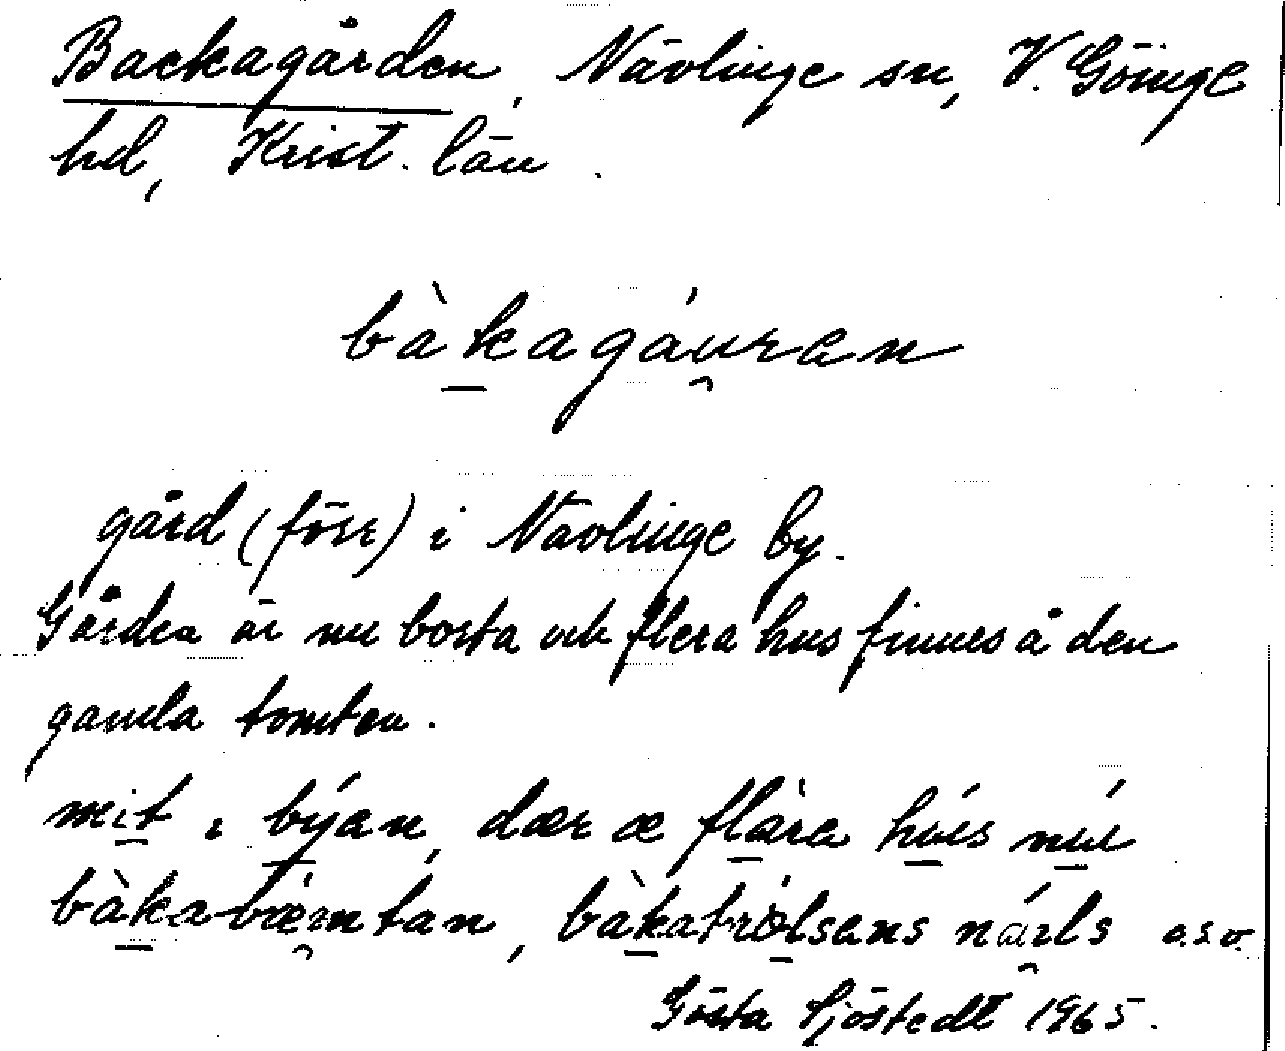 Backagården, Nävlinge sn, V. Göinge
hd, Krist. län.
bàkagáuran
gård (förr) i Nävlinge by.
Gården är nu borta och flera hus finnes å den
gamla tomten.
mit i býan, dær æ flàra hús nú
bàkabæ̀mtan, bàkatròlsens nárls o.s.v.
Gösta Sjöstedt 1965.